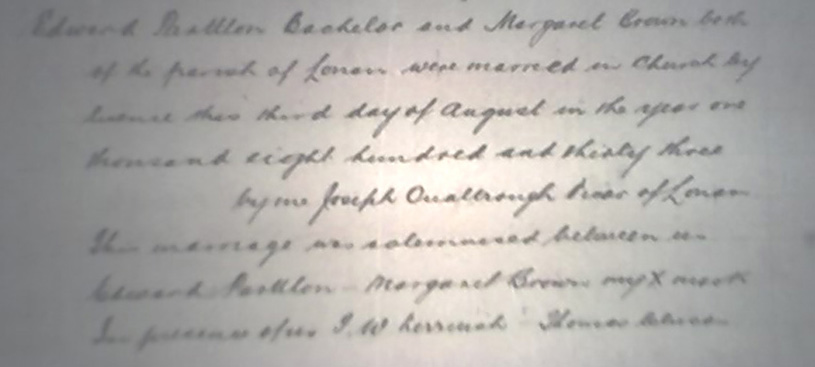 Edward Bachelor and Margaret Brown both
of the parish of Lonan were married in Church by
licence this third day of August in the year one
thousand eight hundred and thirty three
by me Joseph Qualtrough Vicar of Lonan
This marriage was solemnised between us
Edward Margaret Brown my X mark
In presence of us J. W. Thomas